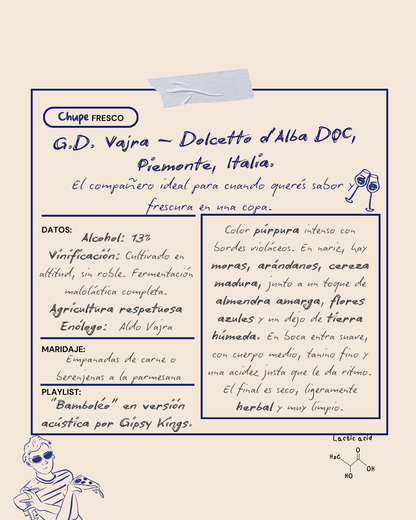 Chupe FRESCO
G.D. Vajra – Dolcetto d'Alba DOC,
Piemonte, Italia.
El compañero ideal para cuando querés sabor y
frescura en una copa.
DATOS:
Alcohol: 13%
Vinificación: Cultivado en
altitud, sin roble. Fermentación
maloláctica completa.
Agricultura respetuosa
Enólogo: Aldo Vajra
MARIDAJE:
Empanadas de carne o
berenjenas a la parmesana
PLAYLIST:
"Bamboléo" en versión
acústica por Gipsy Kings.
Color púrpura intenso con
bordes violáceos. En nariz, hay
moras, arándanos, cereza
madura, junto a un toque de
almendra amarga, flores
azules y un dejo de tierra
húmeda. En boca entra suave,
con cuerpo medio, tanino fino y
una acidez justa que le da ritmo.
El final es seco, ligeramente
herbal y muy limpio.
Lactic acid
H₃C
O
OH
HO